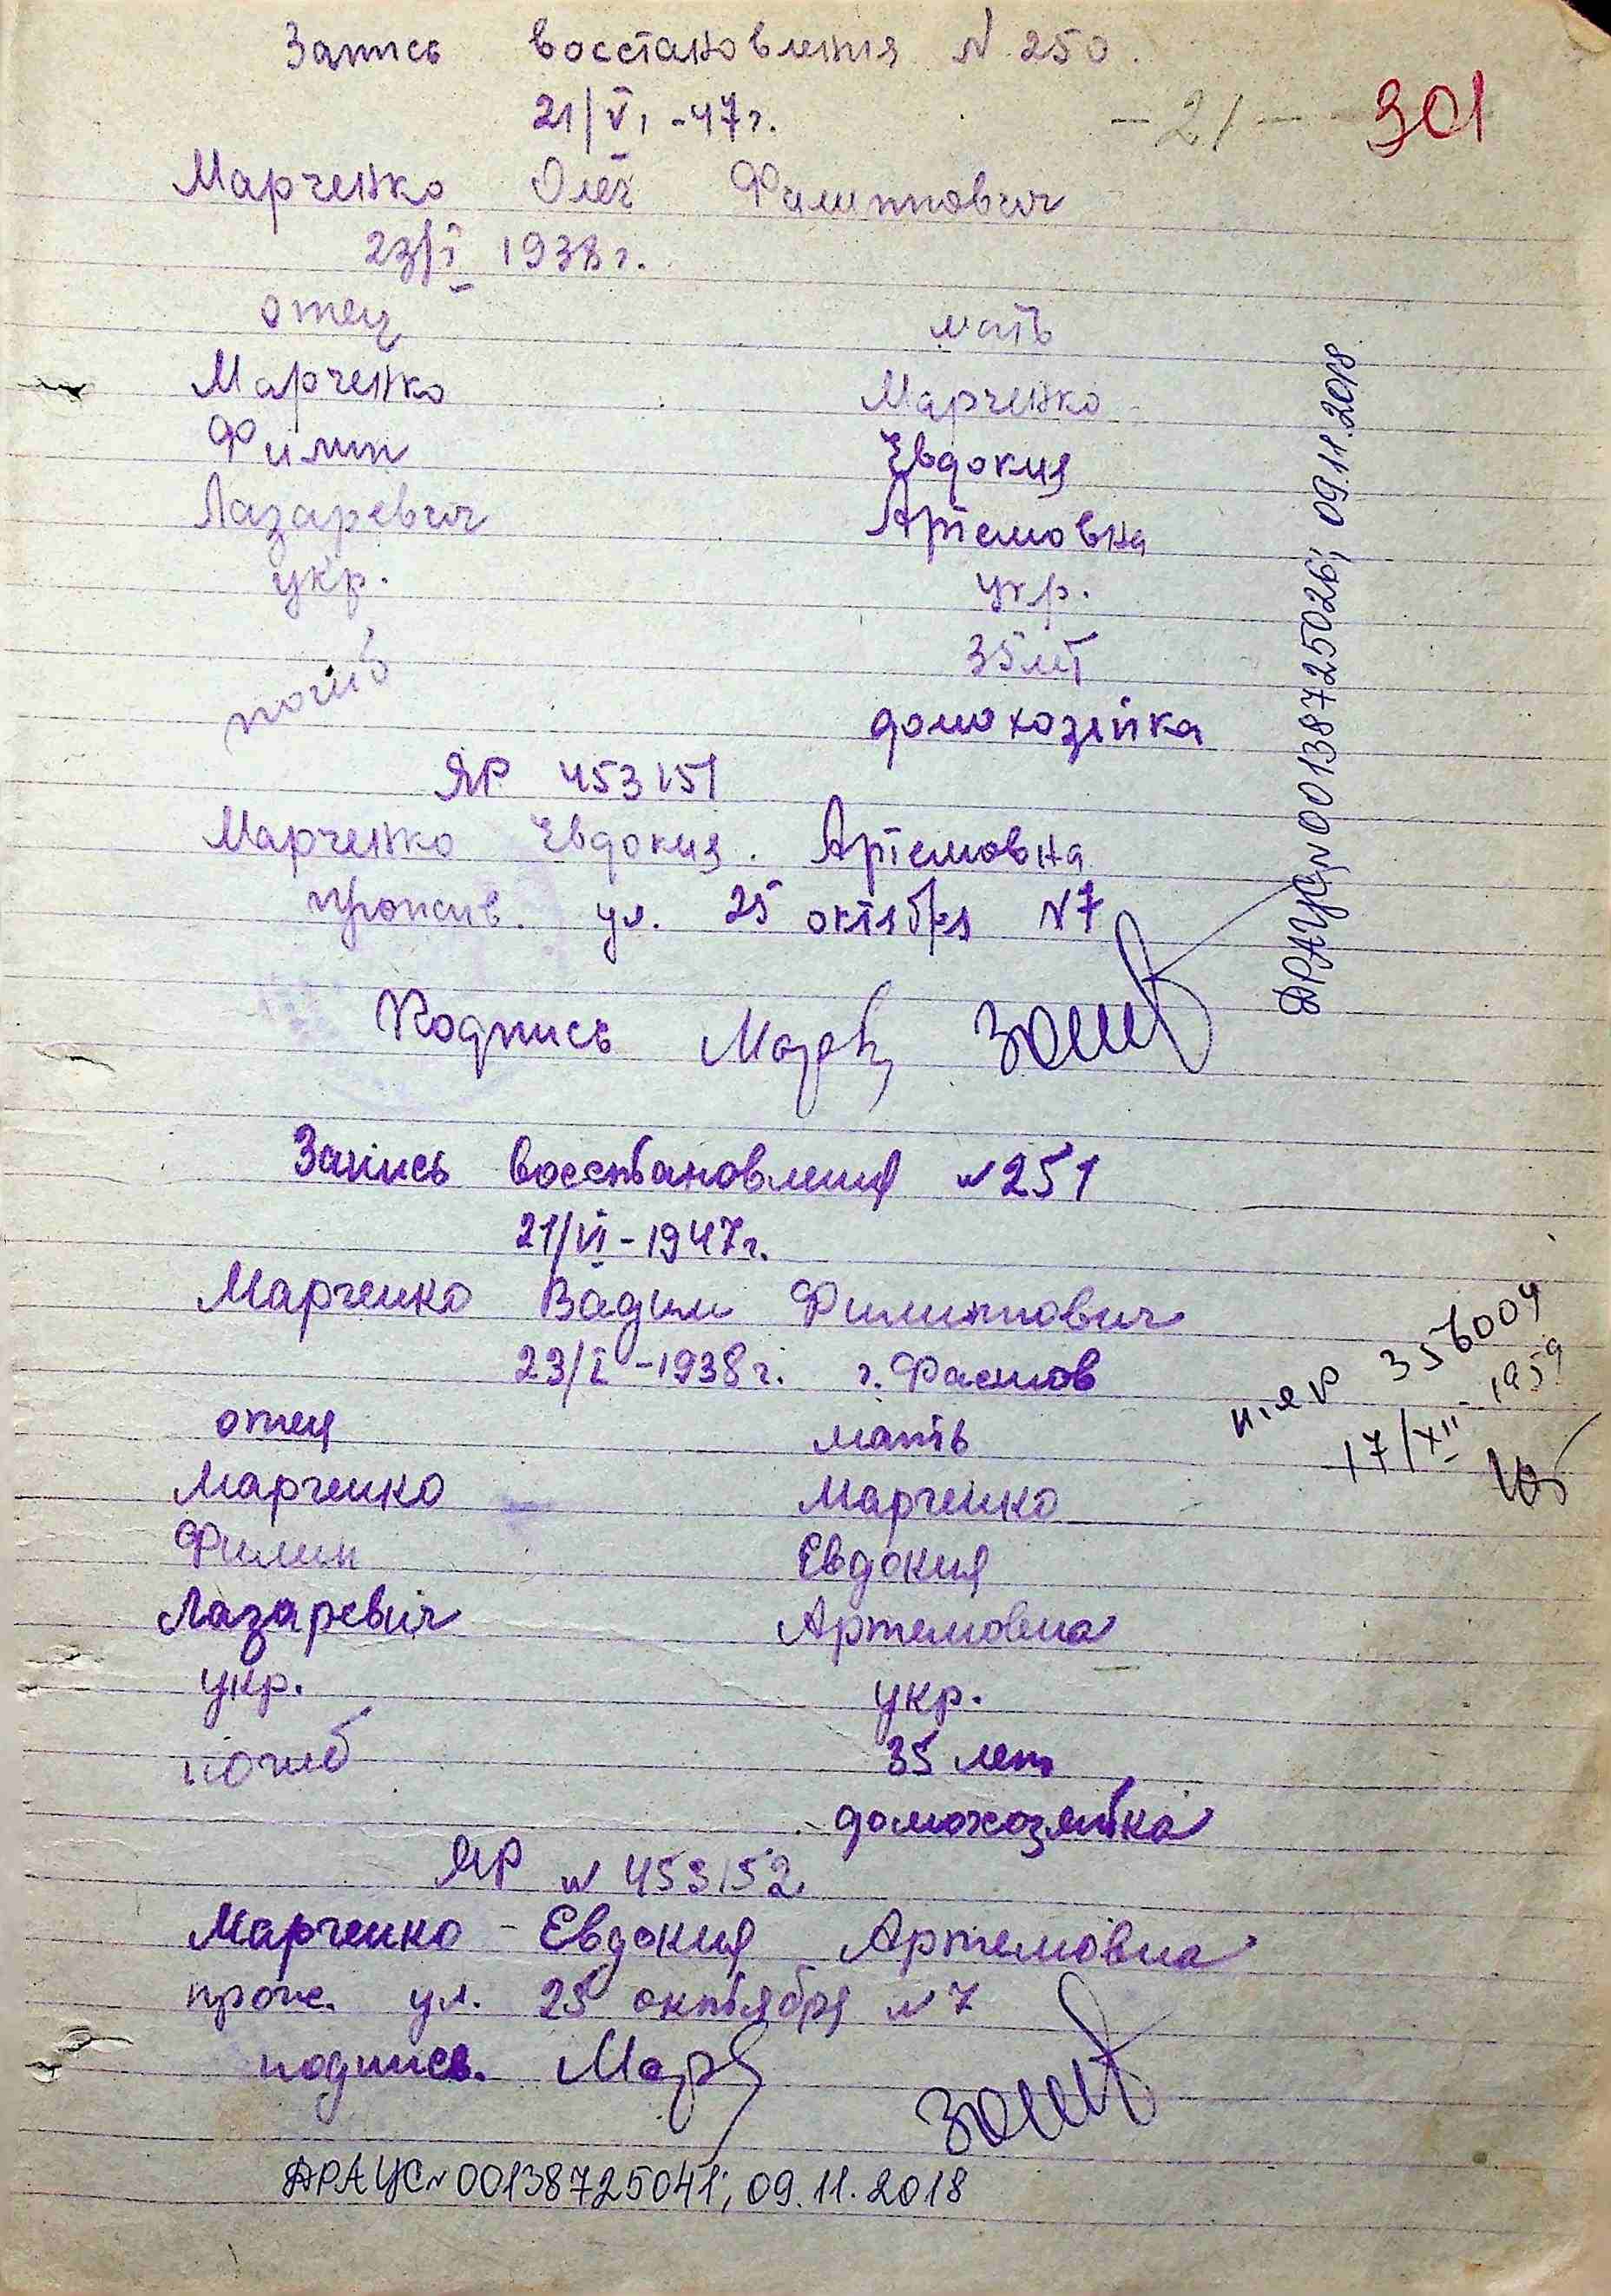 Запись восстановления N 250.
21/VI -47г.
-21-
301
Марченко Олег Филиппович
23/I 1938г.
отец мать
Марченко Марченко
Филип Евдокия
Лазаревич Артемовна
укр. укр.
погиб 35 лет
домохозяйка
ЯР 453151
Марченко Евдокия. Артемовна
прожив. ул. 25 октября N7
Подпись
ДРАЦС N 00138725026; 09.11.2018
Запись восстановления N 251
21/VI - 1947г.
Марченко Вадим Филиппович
23/I - 1938г. г. Фастов
отец мать
Марченко Марченко
Филип Евдокия
Лазаревич Артемовна
укр. укр.
погиб 35 лет
домохозяйка
17/XII - 1959
ЯР N 453152
Марченко Евдокия Артемовна
прож. ул. 25 октября N 7
подпись.
ДРАЦС N 00138725041; 09.11.2018